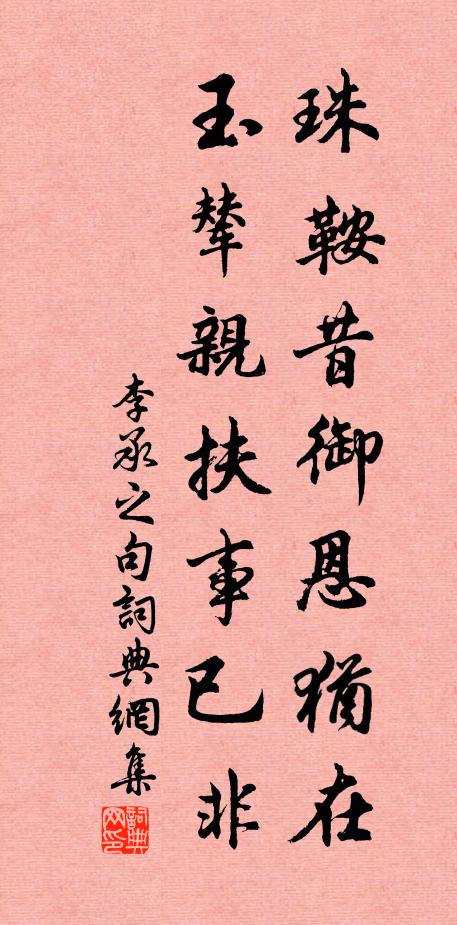 珠鞍昔御恩猶在
玉輦親扶事已非
李承之句詞典網集
詞典网印